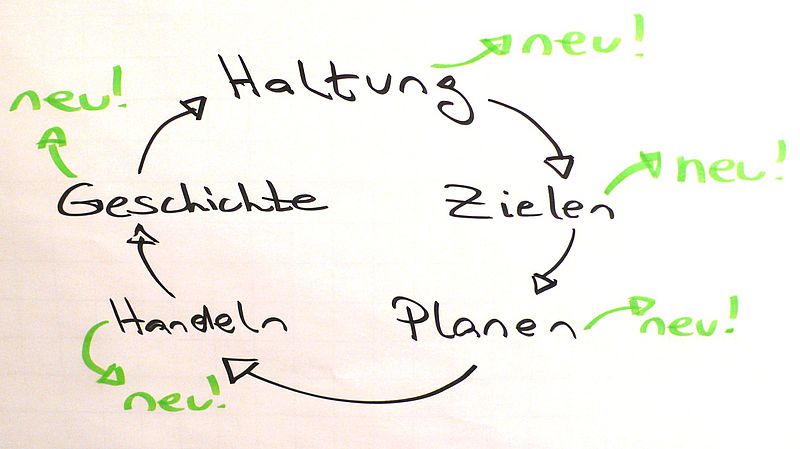 neu!
Haltung
neu!
Geschichte
Zielen
neu!
Handeln
Planen
neu!
neu!